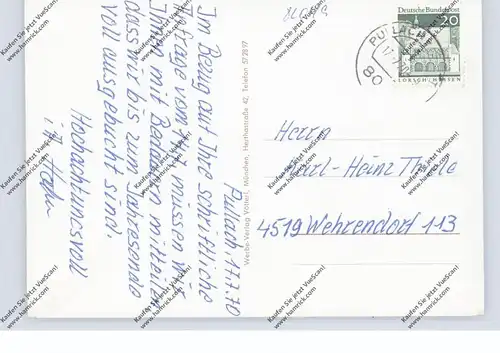 Pullach 17.7.70
Im Bezug auf Ihre schriftliche
Anfrage vom 14.7. müssen wir
Ihnen mit Bedauern mitteilen
dass wir bis zum Jahresende
voll ausgebucht sind.
Hochachtungsvoll
i.A. Hahn
Werbe-Verlag Vötterl, München, Herthastraße 42, Telefon 572897
Deutsche Bundespost
20
LORSCH/HESSEN
PULLACH
80
Herrn
Karl-Heinz
4519 Wehrendorf 113
Kaufen Sie jetzt VueScan!
www.hamrick.com